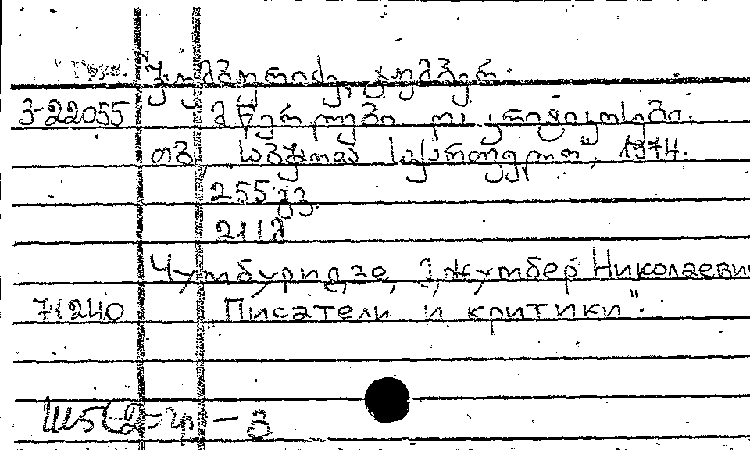 ჭუმბურიძე, ჯუმბერ.
3-22055 მწერლები და კრიტიკოსები.
თბ. „საბჭოთა საქართველო", 1974.
255 გვ.
Чумбуридзе, Джумбер Николаевич
71240 Писатели и критики".